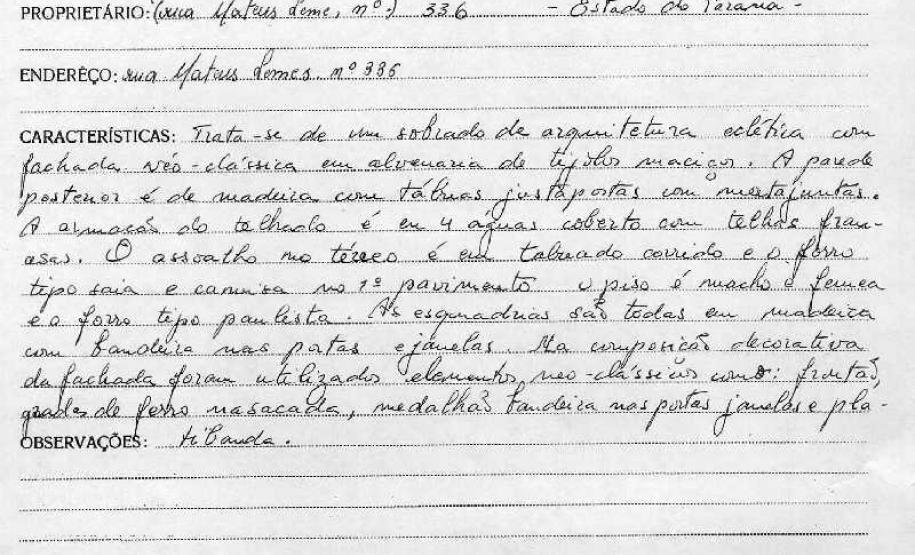 PROPRIETÁRIO: (rua Mateus Leme, nº.) 336 - Estado do Paraná -
ENDERÊÇO: rua Mateus Lemes nº 336
CARACTERÍSTICAS: Trata-se de um sobrado de arquitetura eclética com
fachada néo-clássica em alvenaria de tijolos maciços. A parede
posterior é de madeira com tábuas justapostas com matajuntas.
A armação do telhado é em 4 águas coberto com telhas fran-
esas. O assoalho no térreo é em tabuado corrido e o forro
tipo saia e camisa no 1º pavimento o piso é macho e femea
e o forro tipo paulista. As esquadrias são todas em madeira
com bandeira nas portas e janelas. Na composição decorativa
da fachada foram utilizados elementos neo-clássicos como: frontão,
grades de ferro na sacada, medalhão bandeira nas portas janelas e pla-
OBSERVAÇÕES: tibanda.